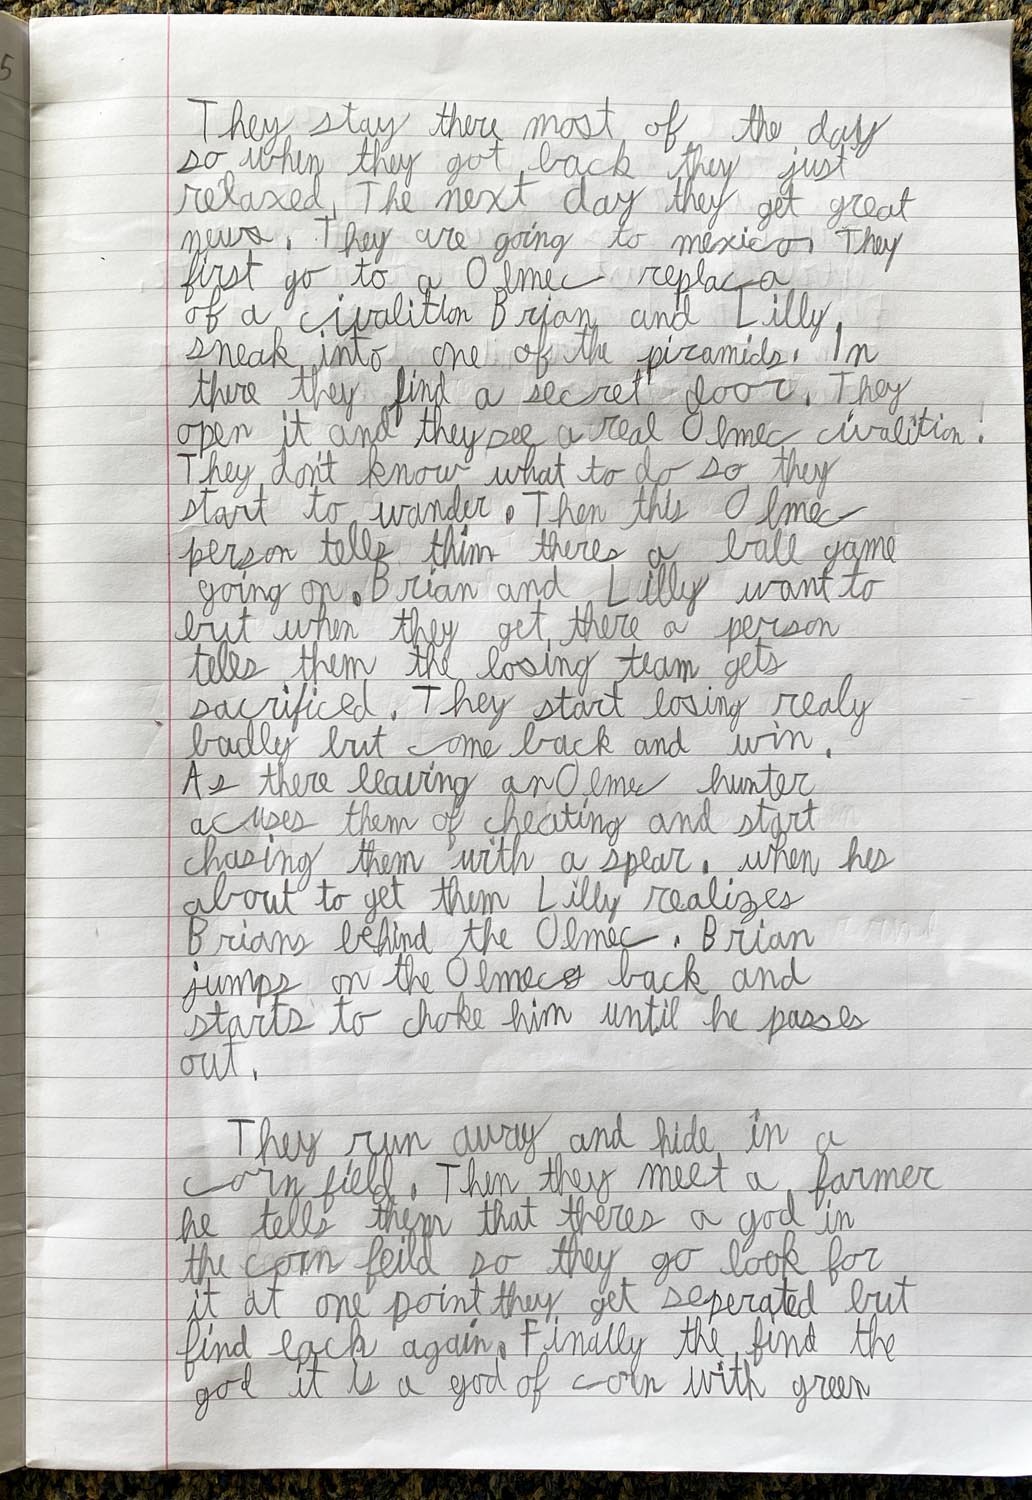 5
They stay there most of the day
so when they got back they just
relaxed. The next day they get great
news. They are going to mexico. They
first go to a Olmec replaca
of a civalition Brian and Lilly,
sneak into one of the piramids. In
there they find a secret door. They
open it and they see a real Olmec civalition!
They don't know what to do so they
start to wander. Then this Olmec
person tells thim theres a ball game
going on. Brian and Lilly want to
but when they get there a person
tells them the losing team gets
sacrificed. They start losing realy
badly but come back and win.
As there leaving an Olmec hunter
acuses them of cheating and start
chasing them with a spear. when hes
about to get them Lilly realizes
Brians behind the Olmec. Brian
jumps on the Olmecs back and
starts to choke him until he passes
out.
They run away and hide in a
corn field. Then they meet a farmer
he tells them that theres a god in
the corn feild so they go look for
it at one point they get seperated but
find eack again. Finally the find the
god it is a god of corn with green